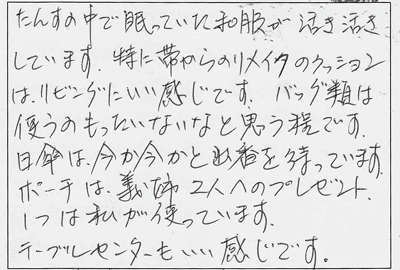 たんすの中で眠っていた和服が活き活き
しています。特に帯からのリメイクのクッション
は、リビングにいい感じです。バッグ類は
使うのもったいないなと思う程です。
日傘は、今か今かと出番を待っています。
ポーチは、義姉2人へのプレゼント、
1つは私が使っています。
テーブルセンターもいい感じです。